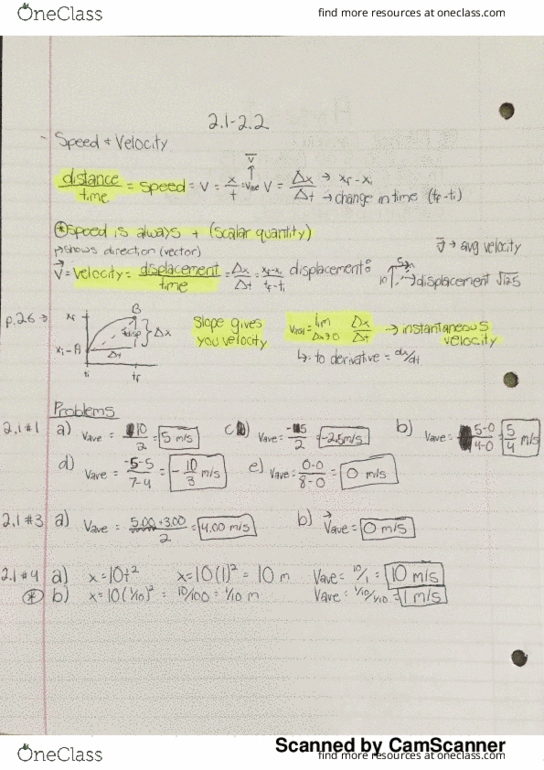 OneClass
find more resources at oneclass.com
2.1-2.2
- Speed + Velocity
distance/time = speed = V = x/t = Vave V̄ V = Δx/Δt → xf - xi → change in time (tf - ti)
* Speed is always + (scalar quantity)
shows direction (vector)
v̄ → avg velocity
V⃗ = velocity = displacement/time = Δx/Δt = xf-xi/tf-ti displacement: 10 5m → displacement √125
p.26 → xf B xi - A disp Δx Δt ti tf
Slope gives you velocity
lim Δx→0 Δx/Δt → instantaneous velocity
↳ to derivative = dx/dt
Problems
2.1 #1 a) Vave = 10/2 = 5 m/s c) Vave = -5/2 = -2.5m/s b) Vave = 5-0/4-0 = 5/4 m/s
d) Vave = -5-5/7-4 = -10/3 m/s e) Vave = 0-0/8-0 = 0 m/s
2.1 #3 a) Vave = 5.00+3.00/2 = 4.00 m/s b) V⃗ave = 0 m/s
2.1 #4 a) x=10t² x=10(1)² = 10 m Vave = 10/1 = 10 m/s
* b) x=10(1/10)² = 10/100 = 1/10 m Vave = 1/10/1/10 = 1 m/s
Scanned by CamScanner
OneClass
find more resources at oneclass.com